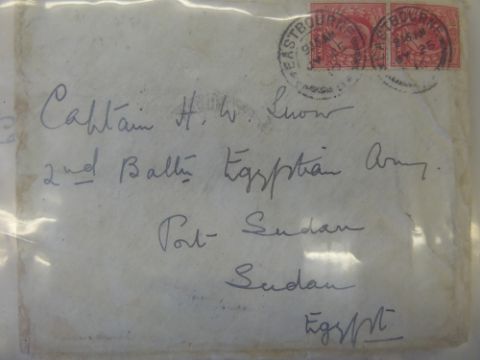 EASTBOURNE EASTBOURNE
Captain H. W. Snow
2nd Baltn Egyptian Army.
Port Sudan
Sudan
Egypt